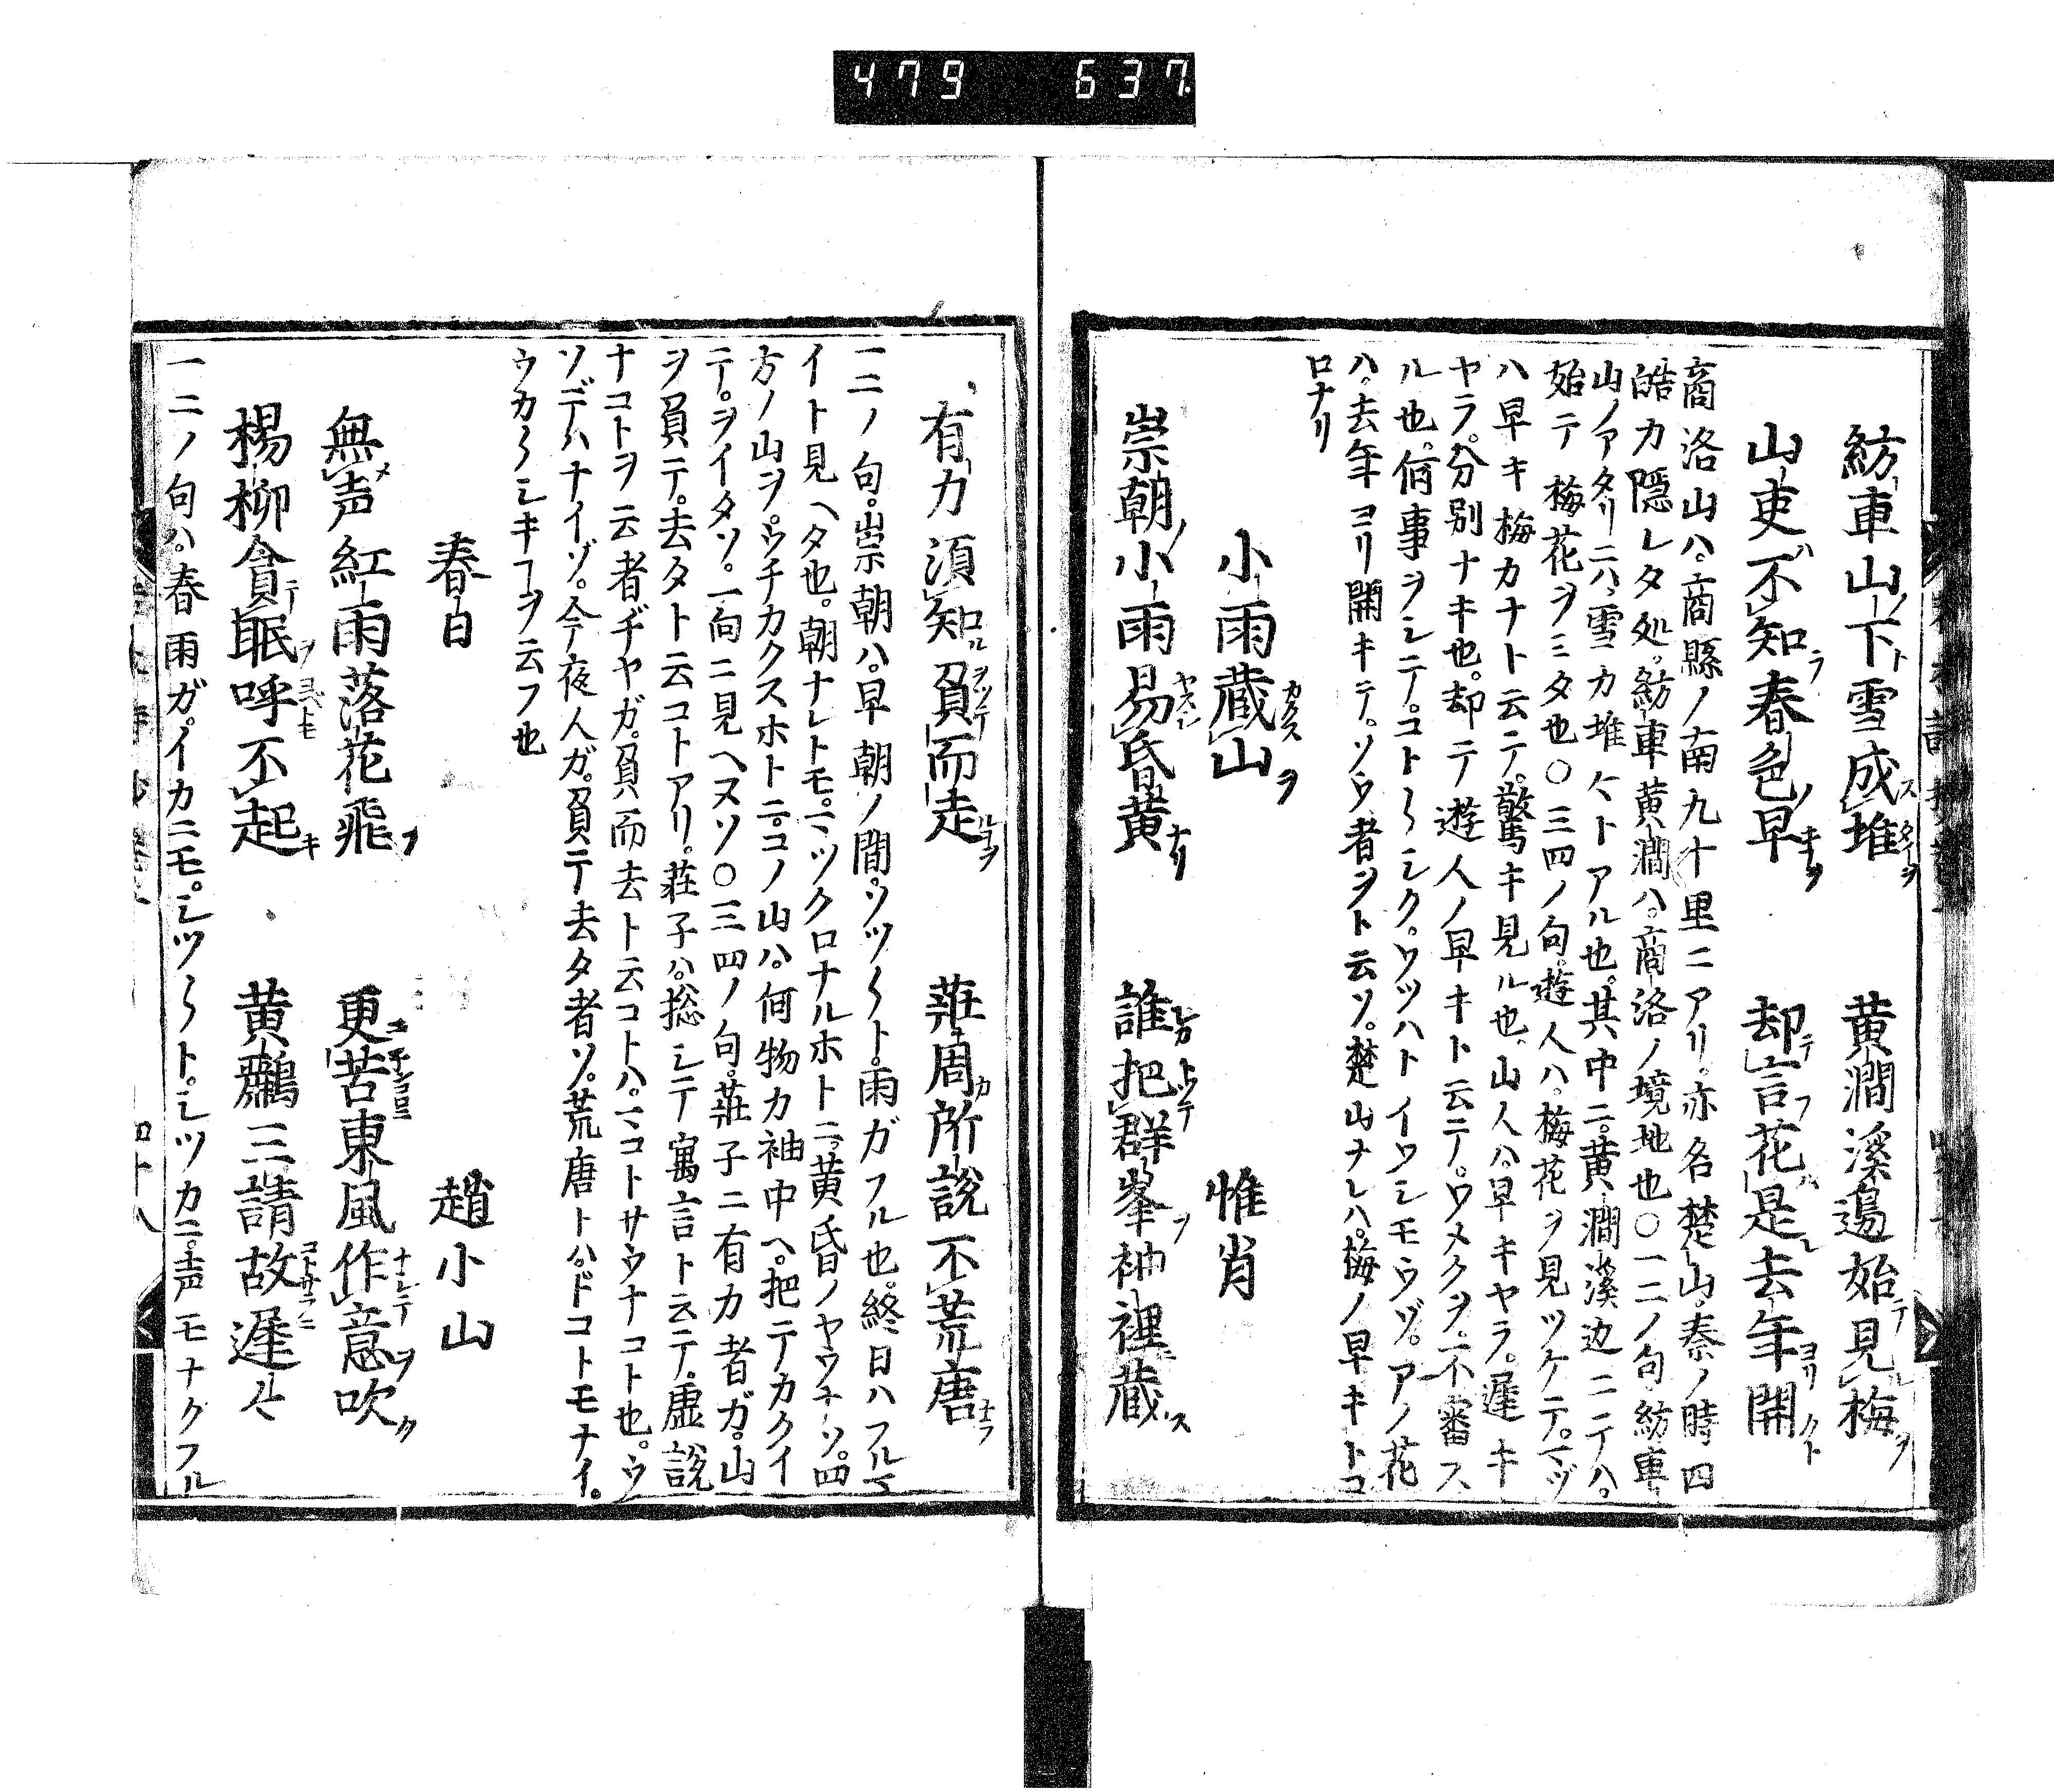 479 637
紡車山下雪成堆 黄澗溪邊始見梅
山吏不知春色早 却言花是去年開
商洛山ハ。商縣ノ南九十里ニアリ。亦名楚山。秦ノ時四
皓カ隠レタ処。紡車黄澗ハ。商洛ノ境地也〇一二ノ句。紡車
山ノアタリニハ。雪カ堆ントアル也。其中ニ。黄澗溪边ニテハ。
始テ梅花ヲミタ也〇三四ノ句。遊人ハ。梅花ヲ見ツケテ。一ヅ
ハ早キ梅カナト云テ。驚キ見ル也。山人ハ。早キヤラ。遲キ
ヤラ。分別ナキ也。却テ遊人ノ早キト云テ。ウメクヲ。不審ス
ル也。何事ヲシテ。コト〱シク。ウツハトイウシモウヅ。アノ花
ハ。去年ヨリ開キテ。ソウ者ヲト云ソ。楚山ナレハ。梅ノ早キトコ
ロナリ
小雨蔵山 惟肖
崇朝小雨易昏黄 誰把群峯袖裡蔵
有力須知負而走 荘周所説不荒唐
一二ノ句。崇朝ハ。早朝ノ間。ウツ〱ト。雨ガフル也。終日ハフルマ
イト見ヘタ也。朝ナレトモ。一ツクロナルホトニ。黄昏ノヤウナソ。四
方ノ山ヲ。ウチカクスホトニ。コノ山ハ。何物カ袖中ヘ。把テカクイ
テ。ヲイタソ。一向ニ見ヘヌソ〇三四ノ句。荘子ニ有力者ガ。山
ヲ負テ。去タト云コトアリ。荘子ハ。揔シテ寓言ト云テ。虚説
ナコトヲ云者ヂヤガ。負而去ト云コトハ。一コトサウナコト也。ウ
ソデハナイゾ。今夜人ガ。負テ去タ者ソ。荒唐トハ。ドコトモナイ。
ウカ〱シキヿヲ云フ也
春日 趙小山
無声紅雨落花飛 更苦東風作意吹
楊柳貪眠呼不起 黄鸝三請故遲〻
一二ノ句ハ。春雨ガ。イカニモ。シツ〱ト。シツカニ。声モナクフル